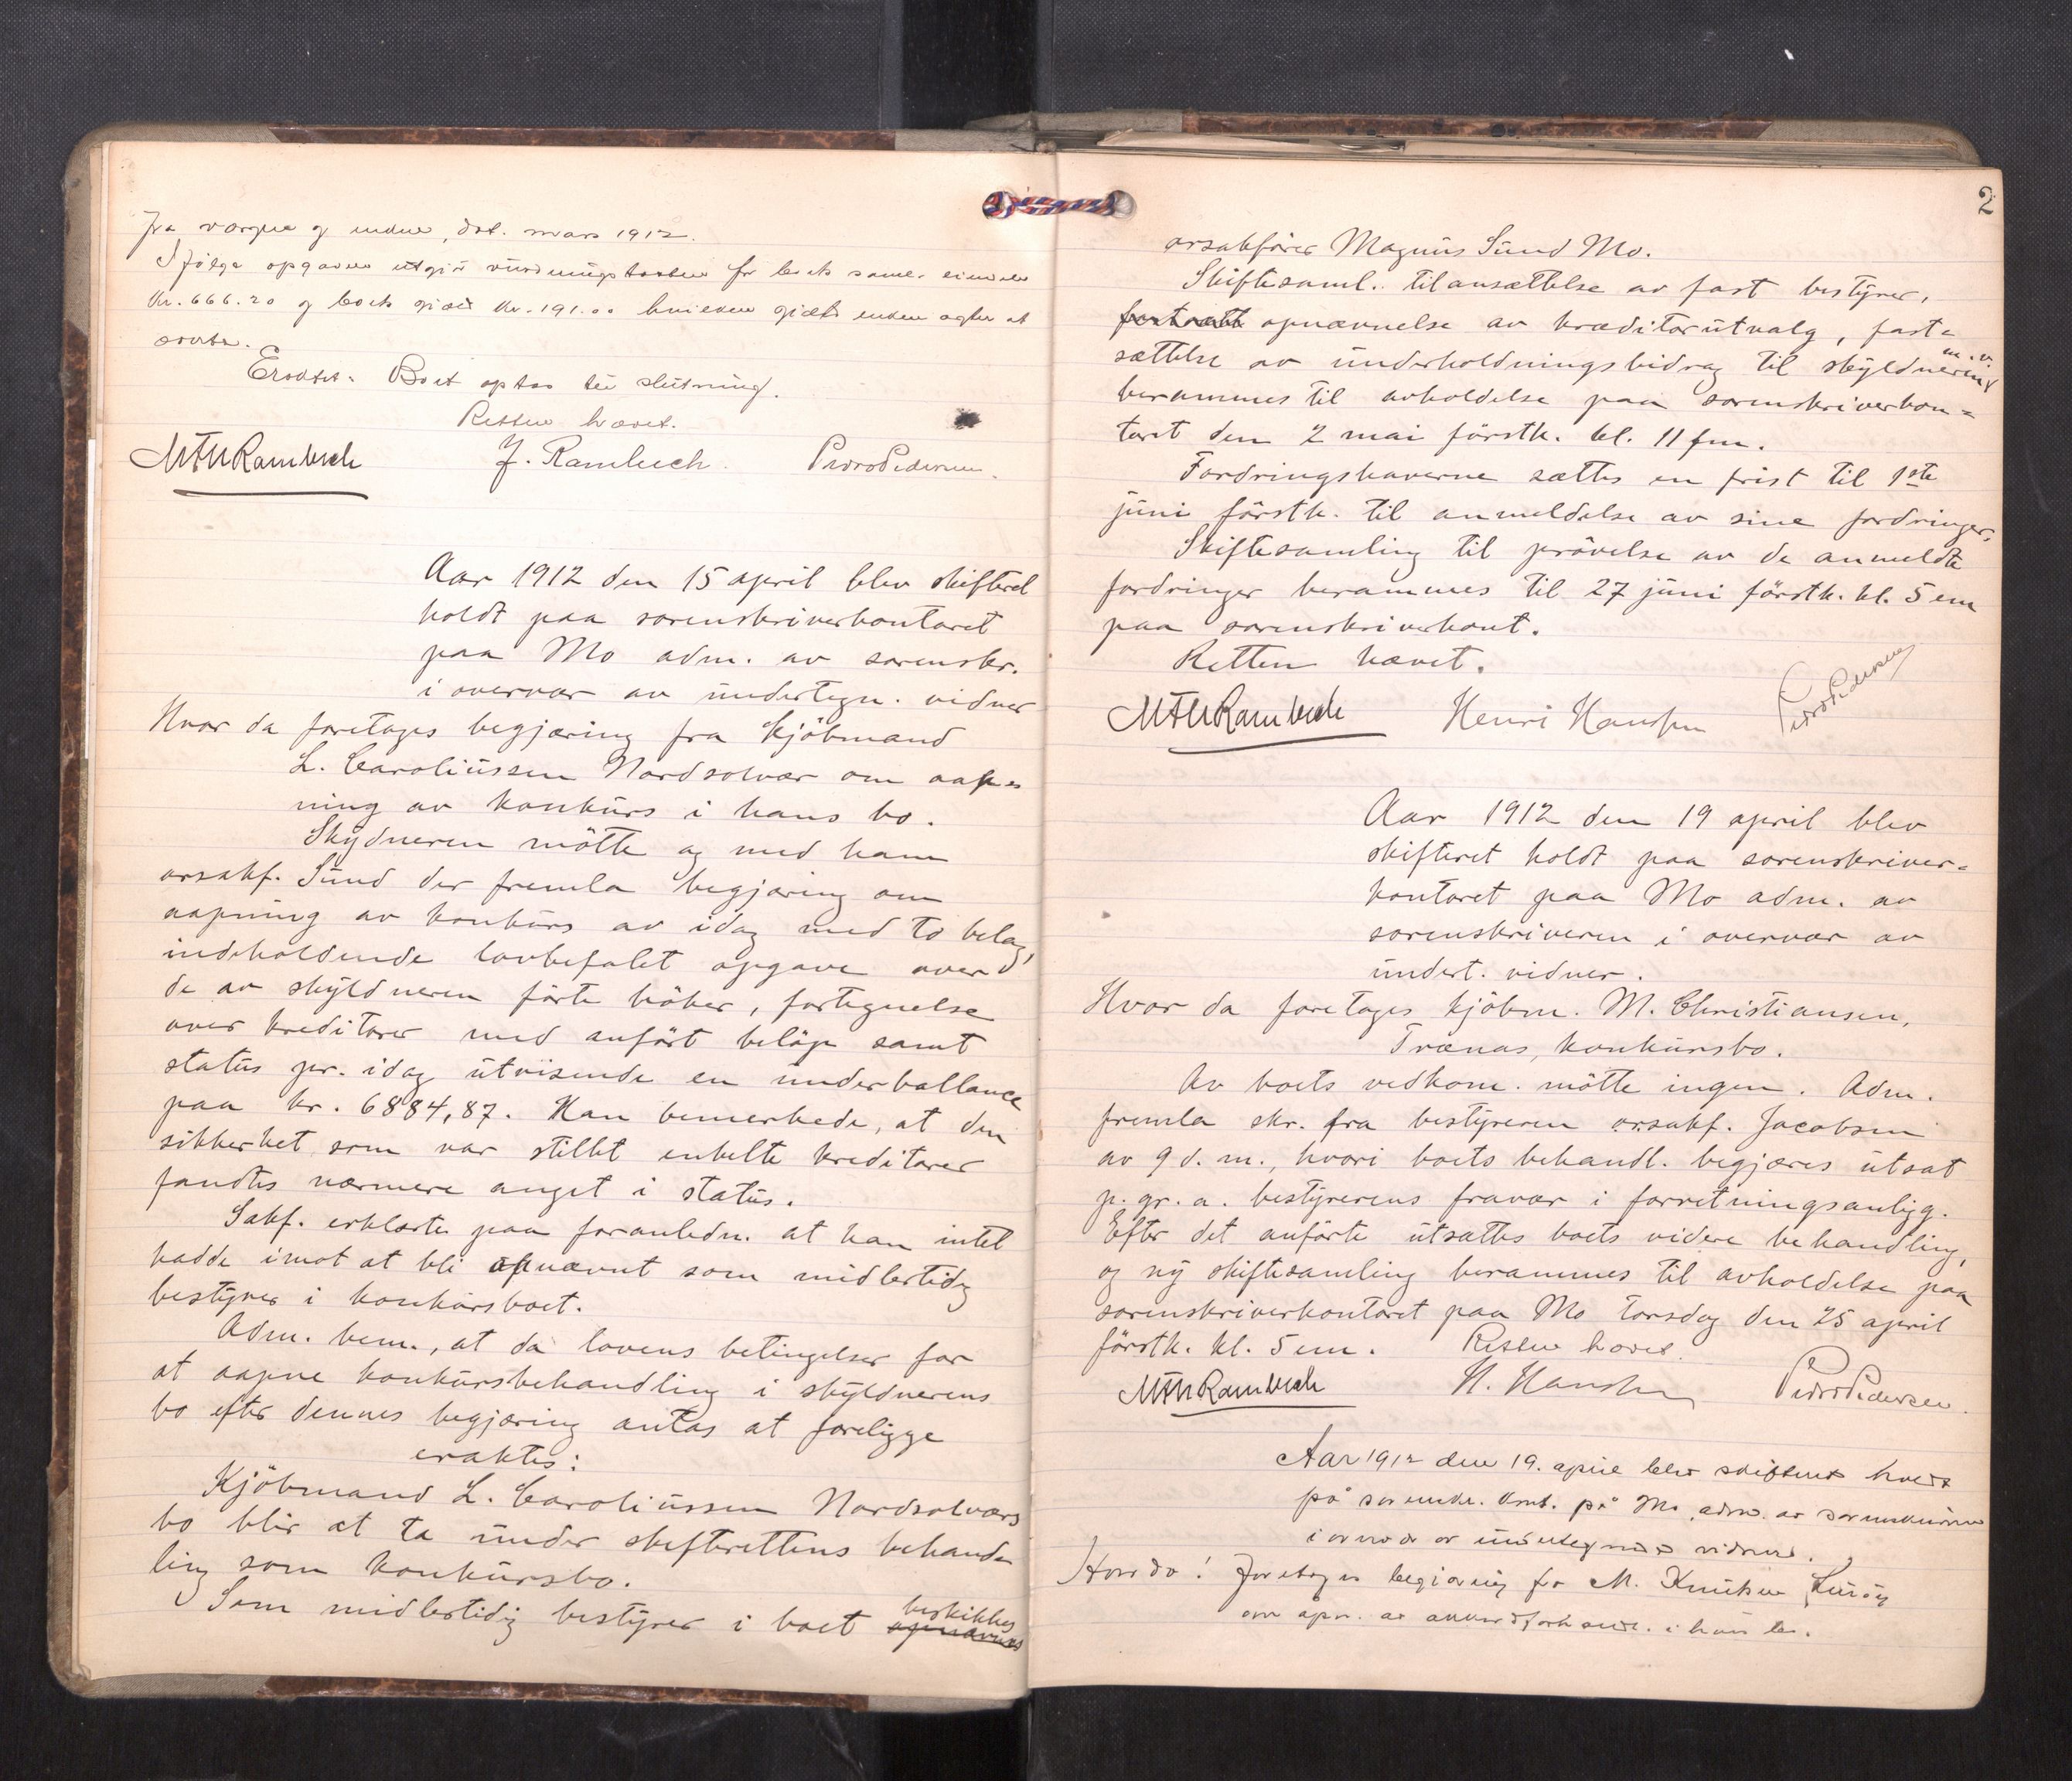 fra værgen og enken, dat. mars 1912.
Ifølge opgaven utgjør vurderingssummen for boets saml. eiendele
Kr. 666.20 og boets gjæld Kr. 191.00 hvilken gjæld enken agter at
overta.
Eraktet: Boet optas til slutning.
Retten hævet.
MFMRambech J. Rambech. Pedro Pedersen.
Aar 1912 den 15 april blev skifteret
holdt paa sorenskriverkontoret
paa Mo adm. av sorenskr.
i overvær av undertegn. vidner
Hvor da foretages begjæring fra kjöbmand
L. Caroliussen Nordsolvær om aap=
ning av konkurs i hans bo.
Skydneren mötte og med ham
orsakf. Sund der fremla begjæring om
aapning av konkurs av idag med to belag,
indeholdende lovbefalet opgave over
de av skyldneren förte böker, fortegnelse
over kreditorer med anfört belöp samt
status pr. idag utvisende en underballance
paa kr. 6884,87. Han bemerkede, at den
sikkerhet som var stillet enkelte kreditorer
fandtes nærmere anget i status.
Sakf. erklærte paa foranledn. at han intet
hadde imot at bli opnævnt som midlertidig
bestyrer i konkursboet.
Adm. bem., at da lovens betingelser for
at aapne konkursbehandling i skyldnerens
bo efter dennes begjæring antas at foreligge
eraktes:
Kjöbmand L. Caroliussen Nordsolværs
bo blir at ta under skifterettens behand=
ling som konkursbo.
Som midlertidig bestyrer i boet opnævnes beskikkes
2
orsakförer Magnus Sund Mo.
Skiftesaml. til ansættelse av fast bestyrer,
fortsatt opnævnelse av kreditorutvalg, fast=
sættelse av underholdningsbidrag til skyldneren m.v.
berammes til avholdelse paa sorenskriverkon=
toret den 2 mai förstk. kl. 11 fm.
Fordringshaverne sættes en frist til 1ste
juni förstk. til anmeldelse av sine fordringer.
Skiftesamling til prövelse av de anmeldte
fordringer berammes til 27 juni förstk. kl. 5 em
paa sorenskriverkont.
Retten hævet.
MFMRambech Henri Hanssen Pedro Pedersen
Aar 1912 den 19 april blev
skifteret holdt paa sorenskriver=
kontoret paa Mo adm. av
sorenskriveren i overvær av
undert. vidner.
Hvor da foretages kjöbm. M. Christiansen,
Trænas, konkursbo.
Av boets vedkom. mötte ingen. Adm.
fremla skr. fra bestyreren orsakf. Jacobsen
av 9 d. m., hvori boets behandl. begjæres utsat
p. gr. a. bestyrerens fravær i forretningsanligg.
Efter det anförte utsættes boets videre behandling,
og ny skiftesamling berammes til avholdelse paa
sorenskriverkontoret paa Mo torsdag den 25 april
förstk. kl. 5 em. Retten hævet.
MFMRambech H. Hanssen Pedro Pedersen.
Aar 1912 den 19. april blev skifteret holdt
på sorenskr. kont. på Mo, adm. av sorenskriveren
i overvær av undertegnede vidner.
Hvor da: Foretages begjæring fra M. Knutsen Lurøy
om åpn. av akkordforhandl. i hans bo.